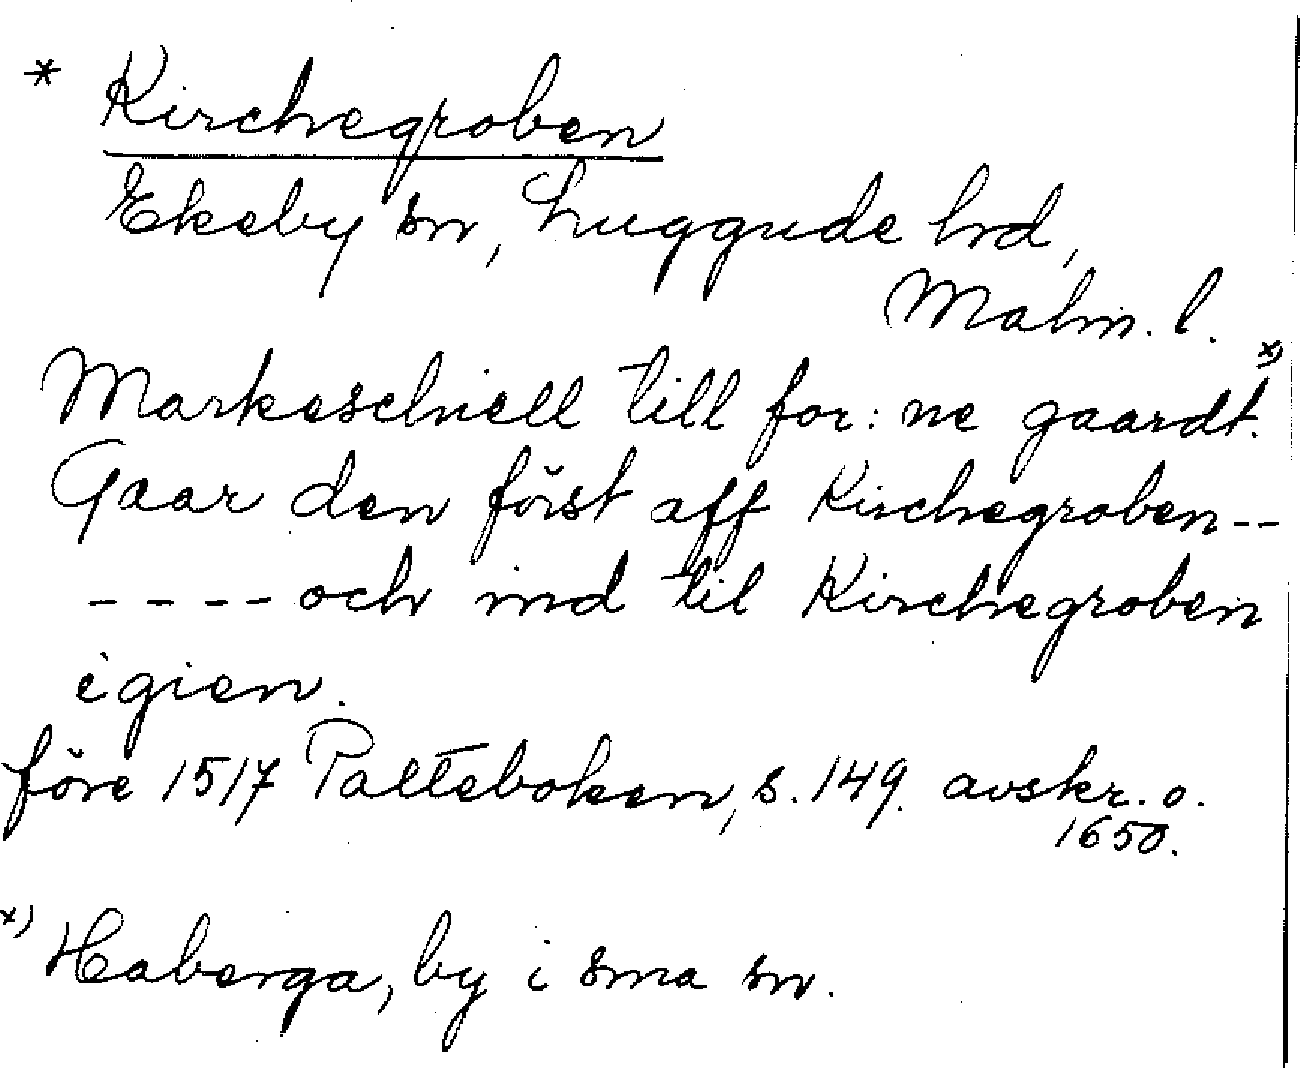 * Kirchegroben
Ekeby sn, Luggude hd,
Malm. l.
Markeschiell till for: ne gaardt. x)
Gaar den först aff Kirchegroben --
---- och ind til Kirchegroben
igien.
före 1517 Palteboken, s. 149. avskr. o.
1650.
x) Haberga, by i sma sn.